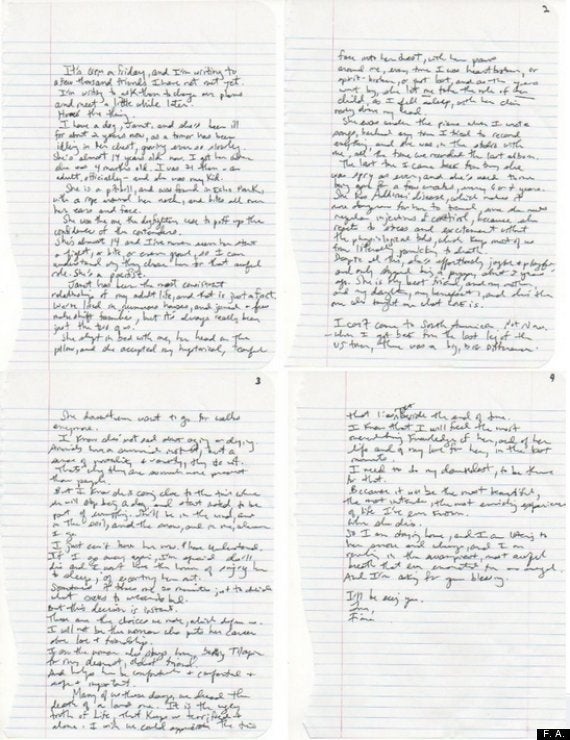 It's 6pm on Friday, and I'm writing to
a few thousand friends I have not met yet.
I'm writing to ask them to change our plans
and meet a little while later.
Here's the thing.
I have a dog, Janet, and she's been ill
for about 2 years now, as a tumor has been
idling in her chest, growing ever so slowly.
She's almost 14 years old now. I got her when
she was 4 months old. I was 21 then - an
adult, officially - and she was my kid.
She is a pitbull, and was found in Echo Park,
with a rope around her neck, and bites all over
her ears and face.
She was the one the dogfighters use to puff up the
confidence of the contenders.
She's almost 14 and I've never seen her start
a fight, or bite, or even growl, so I can
understand why they chose her for that awful
role. She's a pacifist.
Janet has been the most consistent
relationship of my adult life, and that is just a fact.
We've lived in numerous houses, and joined a few
makeshift families, but it's always really been
just the two of us.
She slept in bed with me, her head on the
pillow, and she accepted my hysterical, tearful
2
face into her chest, with her paws
around me, every time I was heartbroken, or
spirit-broken, or just lost, and as the years
went by, she let me take the role of her
child, as I fell asleep, with her chin
resting above my head.
She was under the piano when I wrote
songs, barked any time I tried to record
anything, and she was in the studio with
me, all the time we recorded the last album.
The last time I came back from tour, she
was spry as ever, and she's used to me
being gone for a few weeks, every 6 or 7 years.
She has Addison's disease, which makes it
more dangerous for her to travel, since she needs
regular injections of Cortisol, because she
reacts to stress and excitement without
the physiological tools which keep most of us
from literally panicking to death.
Despite all this, she's effortlessly joyful &amp; playful
and only stopped being a puppy about 3 years
ago. She is my best friend, and my mother,
and my daughter, my benefactor, and she's the
one who taught me what love is.
I can't come to South America. Not now.
When I got back from the last leg of the
US tour, there was a big, big difference.
3
She doesn't even want to go for walks
anymore.
I know she's not sad about aging or dying.
Animals have a survival instinct, but a
sense of mortality &amp; vanity, they do not.
That's why they are so much more present
than people.
But I know she is coming close to the time where
she will stop being a dog, and start instead to be
part of everything. She'll be in the wind, and
in the soil, and the snow, and in me, wherever
I go.
I just can't leave her now. Please understand.
If I go away again, I'm afraid she'll
die and I won't have the honor of singing her
to sleep, of escorting her out.
Sometimes it takes me 20 minutes just to decide
what socks to wear to bed.
But this decision is instant.
These are the choices we make, which define us.
I will not be the woman who puts her career
ahead of love &amp; friendship.
I am the woman who stays home, baking Tilapia
for my dearest, oldest friend.
And helps her be comfortable &amp; comforted &amp;
safe &amp; important.
Many of us these days, we dread the
death of a loved one. It is the ugly
truth of Life, that keeps us terrified &amp;
alone. I wish we could also appreciate the time
4
that lies right beside the end of time.
I know that I will feel the most
overwhelming knowledge of her, and of her
life and of my love for her, in the last
moments.
I need to do my damnedest, to be there
for that.
Because it will be the most beautiful,
the most intense, the most enriching experience
of life I've ever known.
When she dies.
So I am staying home, and I am listening to
her snore and wheeze, and I am
revelling in the swampiest, most awful
breath that ever emanated from an angel.
And I'm asking for your blessing.
I'll be seeing you.
Love,
Fiona
F. A.